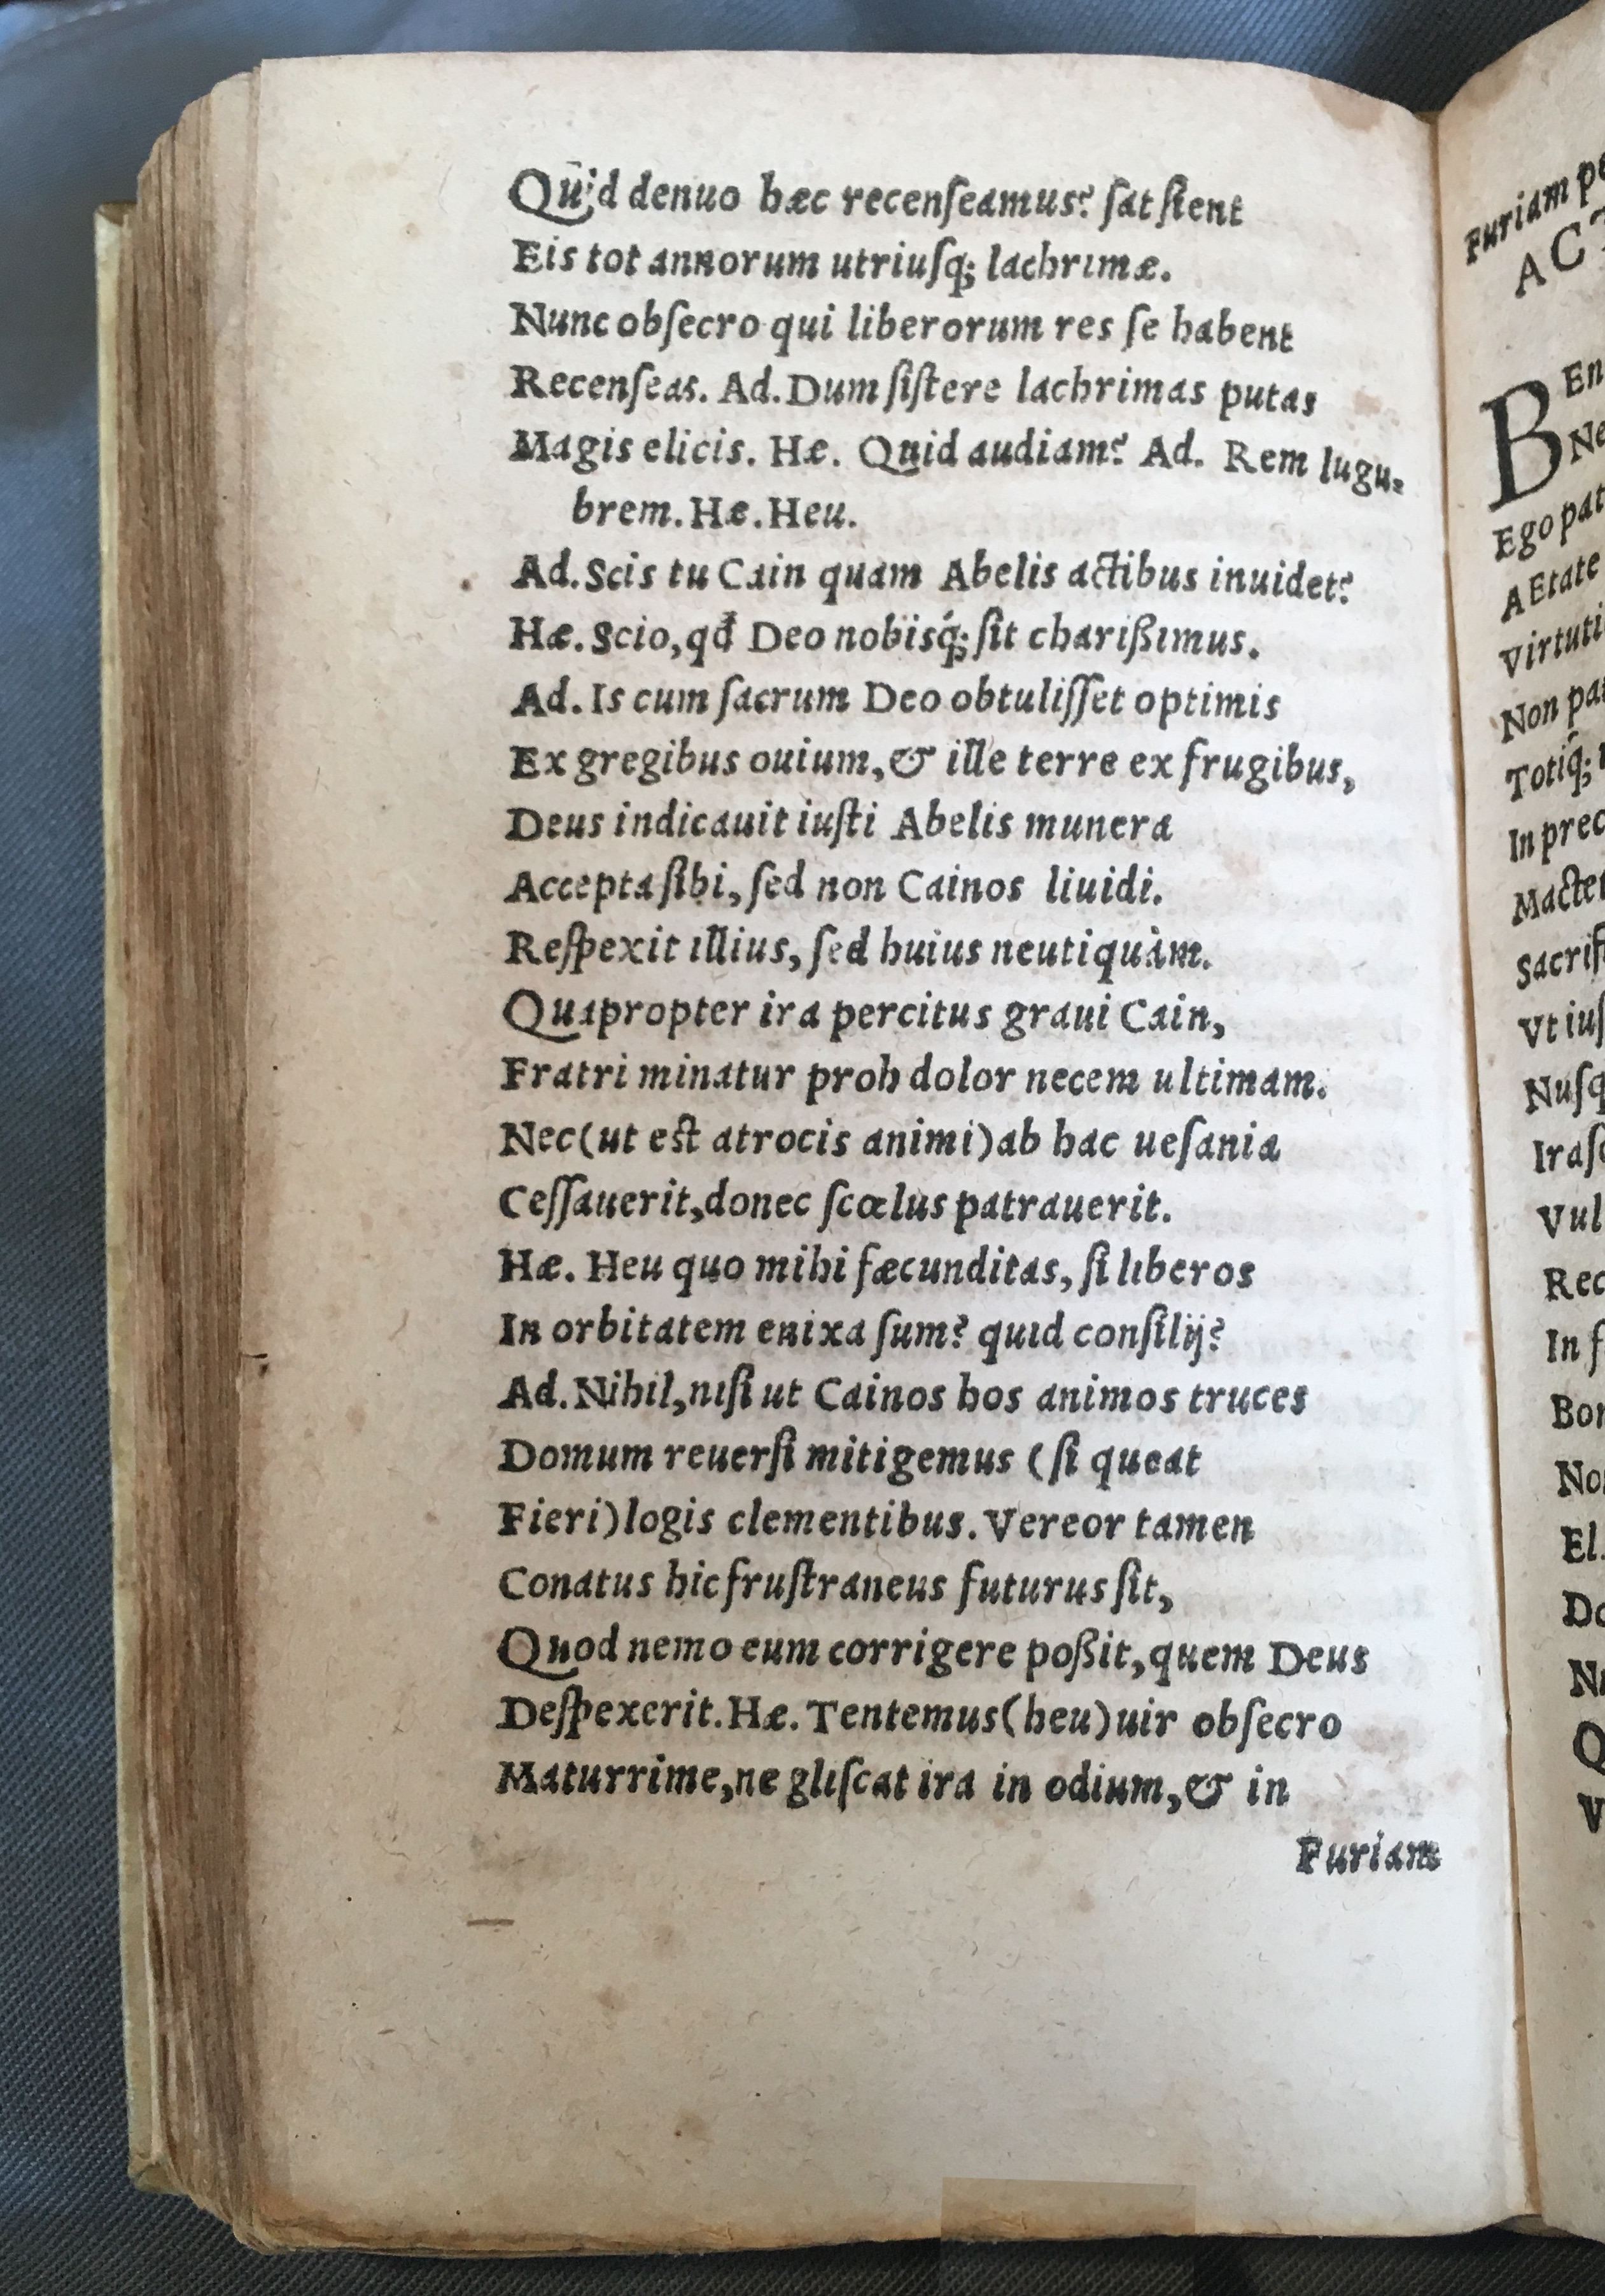 Quid denuo hæc recenſeamus? ſat ſient
Eis tot annorum utriuſq; lachrimæ.
Nunc obſecro qui liberorum res ſe habent
Recenſeas. Ad. Dum ſiſtere lachrimas putas
Magis elicis. Hæ. Quid audiam? Ad. Rem lugu-
brem. Hæ. Heu.
Ad. Scis tu Cain quam Abelis actibus inuidet?
Hæ. Scio, qđ Deo nobisq́; ſit charißimus.
Ad. Is cum ſacrum Deo obtuliſſet optimis
Ex gregibus ouium, & ille terre ex frugibus,
Deus indicauit iuſti Abelis munera
Accepta ſibi, ſed non Cainos liuidi.
Reſpexit illius, ſed huius neutiquàm.
Quapropter ira percitus graui Cain,
Fratri minatur proh dolor necem ultimam.
Nec (ut eſt atrocis animi) ab hac ueſania
Ceſſauerit, donec ſcœlus patrauerit.
Hæ. Heu quo mihi fæcunditas, ſi liberos
In orbitatem enixa ſum? quid conſilij?
Ad. Nihil, niſi ut Cainos hos animos truces
Domum reuerſi mitigemus (ſi queat
Fieri) logis clementibus. Vereor tamen
Conatus hic fruſtraneus futurus ſit,
Quod nemo eum corrigere poßit, quem Deus
Deſpexerit. Hæ. Tentemus (heu) uir obſecro
Maturrime, ne gliſcat ira in odium, & in
Furiam
Furiam
En
Ego
AEtate
Non
Totiq́;
In
Vt